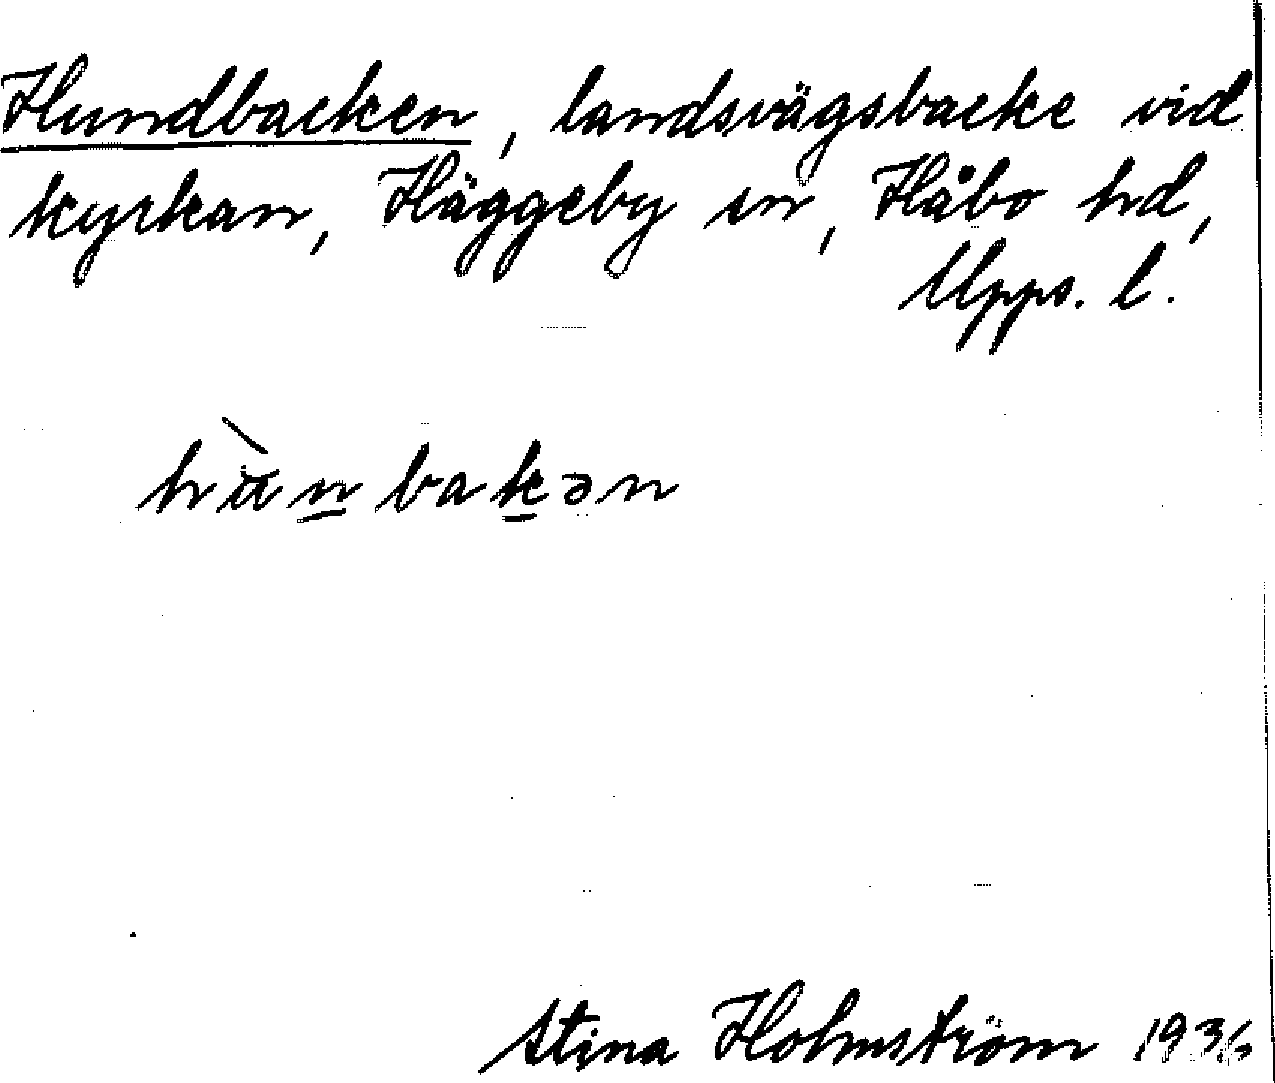 Hundbacken, landsvägsbacke vid
kyrkan, Häggeby sn, Håbo hd,
Upps. l.
hùn̲bak̲ən
Stina Holmström 1936